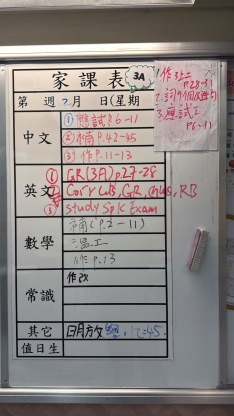 家課表 3A
第 週 2月 日(星期
中文
① 應試 P.6-11
② 補 P.42-45
③ 作 P.11-13
英文
① GR(3A) p27-28
② Corr WB, GR, RB
③ Study Spk Exam
數學
補(P.2-11)
溫工
作 P.13
常識
作改
其它
明放 :45
值日生
1.作
P.28-31
2.詞
3.應試工
P6-11